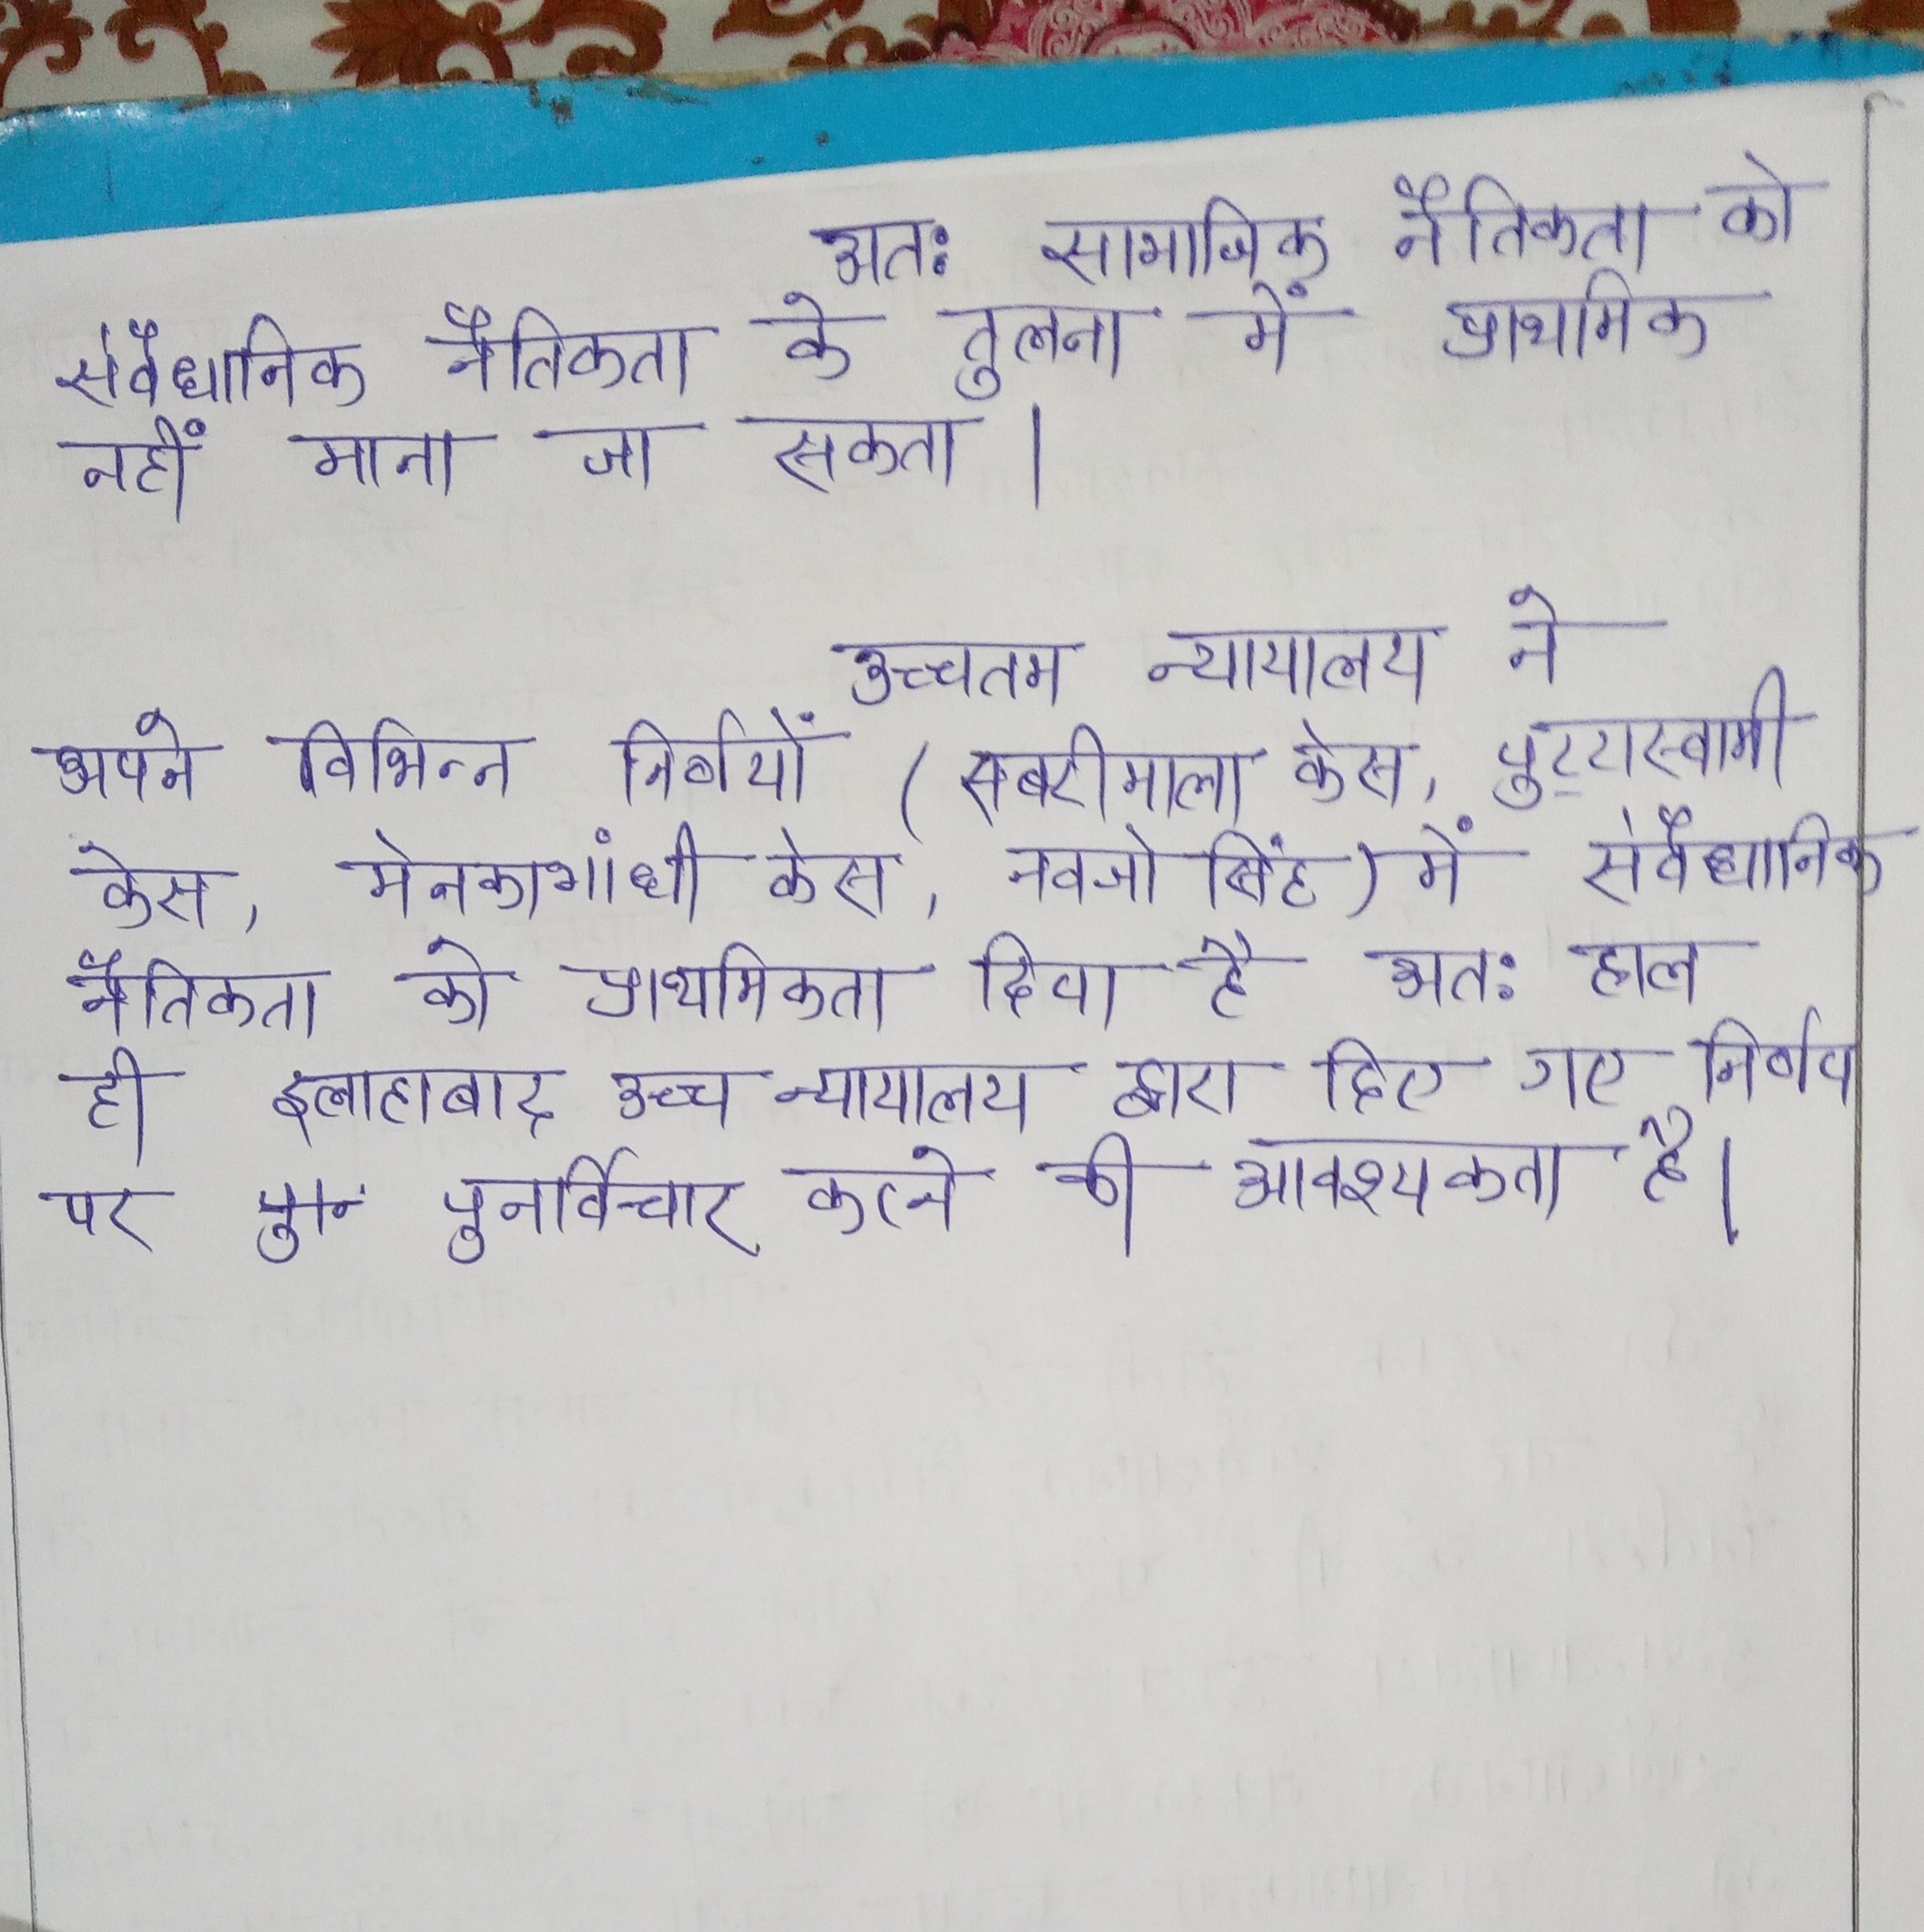 अतः सामाजिक नैतिकता को
संवैधानिक नैतिकता के तुलना में प्राथमिक
नहीं माना जा सकता।
उच्चतम न्यायालय ने
अपने विभिन्न निर्णयों (सबरीमाला केस, पुट्टास्वामी
केस, मेनका गांधी केस, नवजो सिंह) में संवैधानिक
नैतिकता को प्राथमिकता दिया है अतः हाल
ही इलाहाबाद उच्च न्यायालय द्वारा दिए गए निर्णय
पर पुनर्विचार करने की आवश्यकता है।